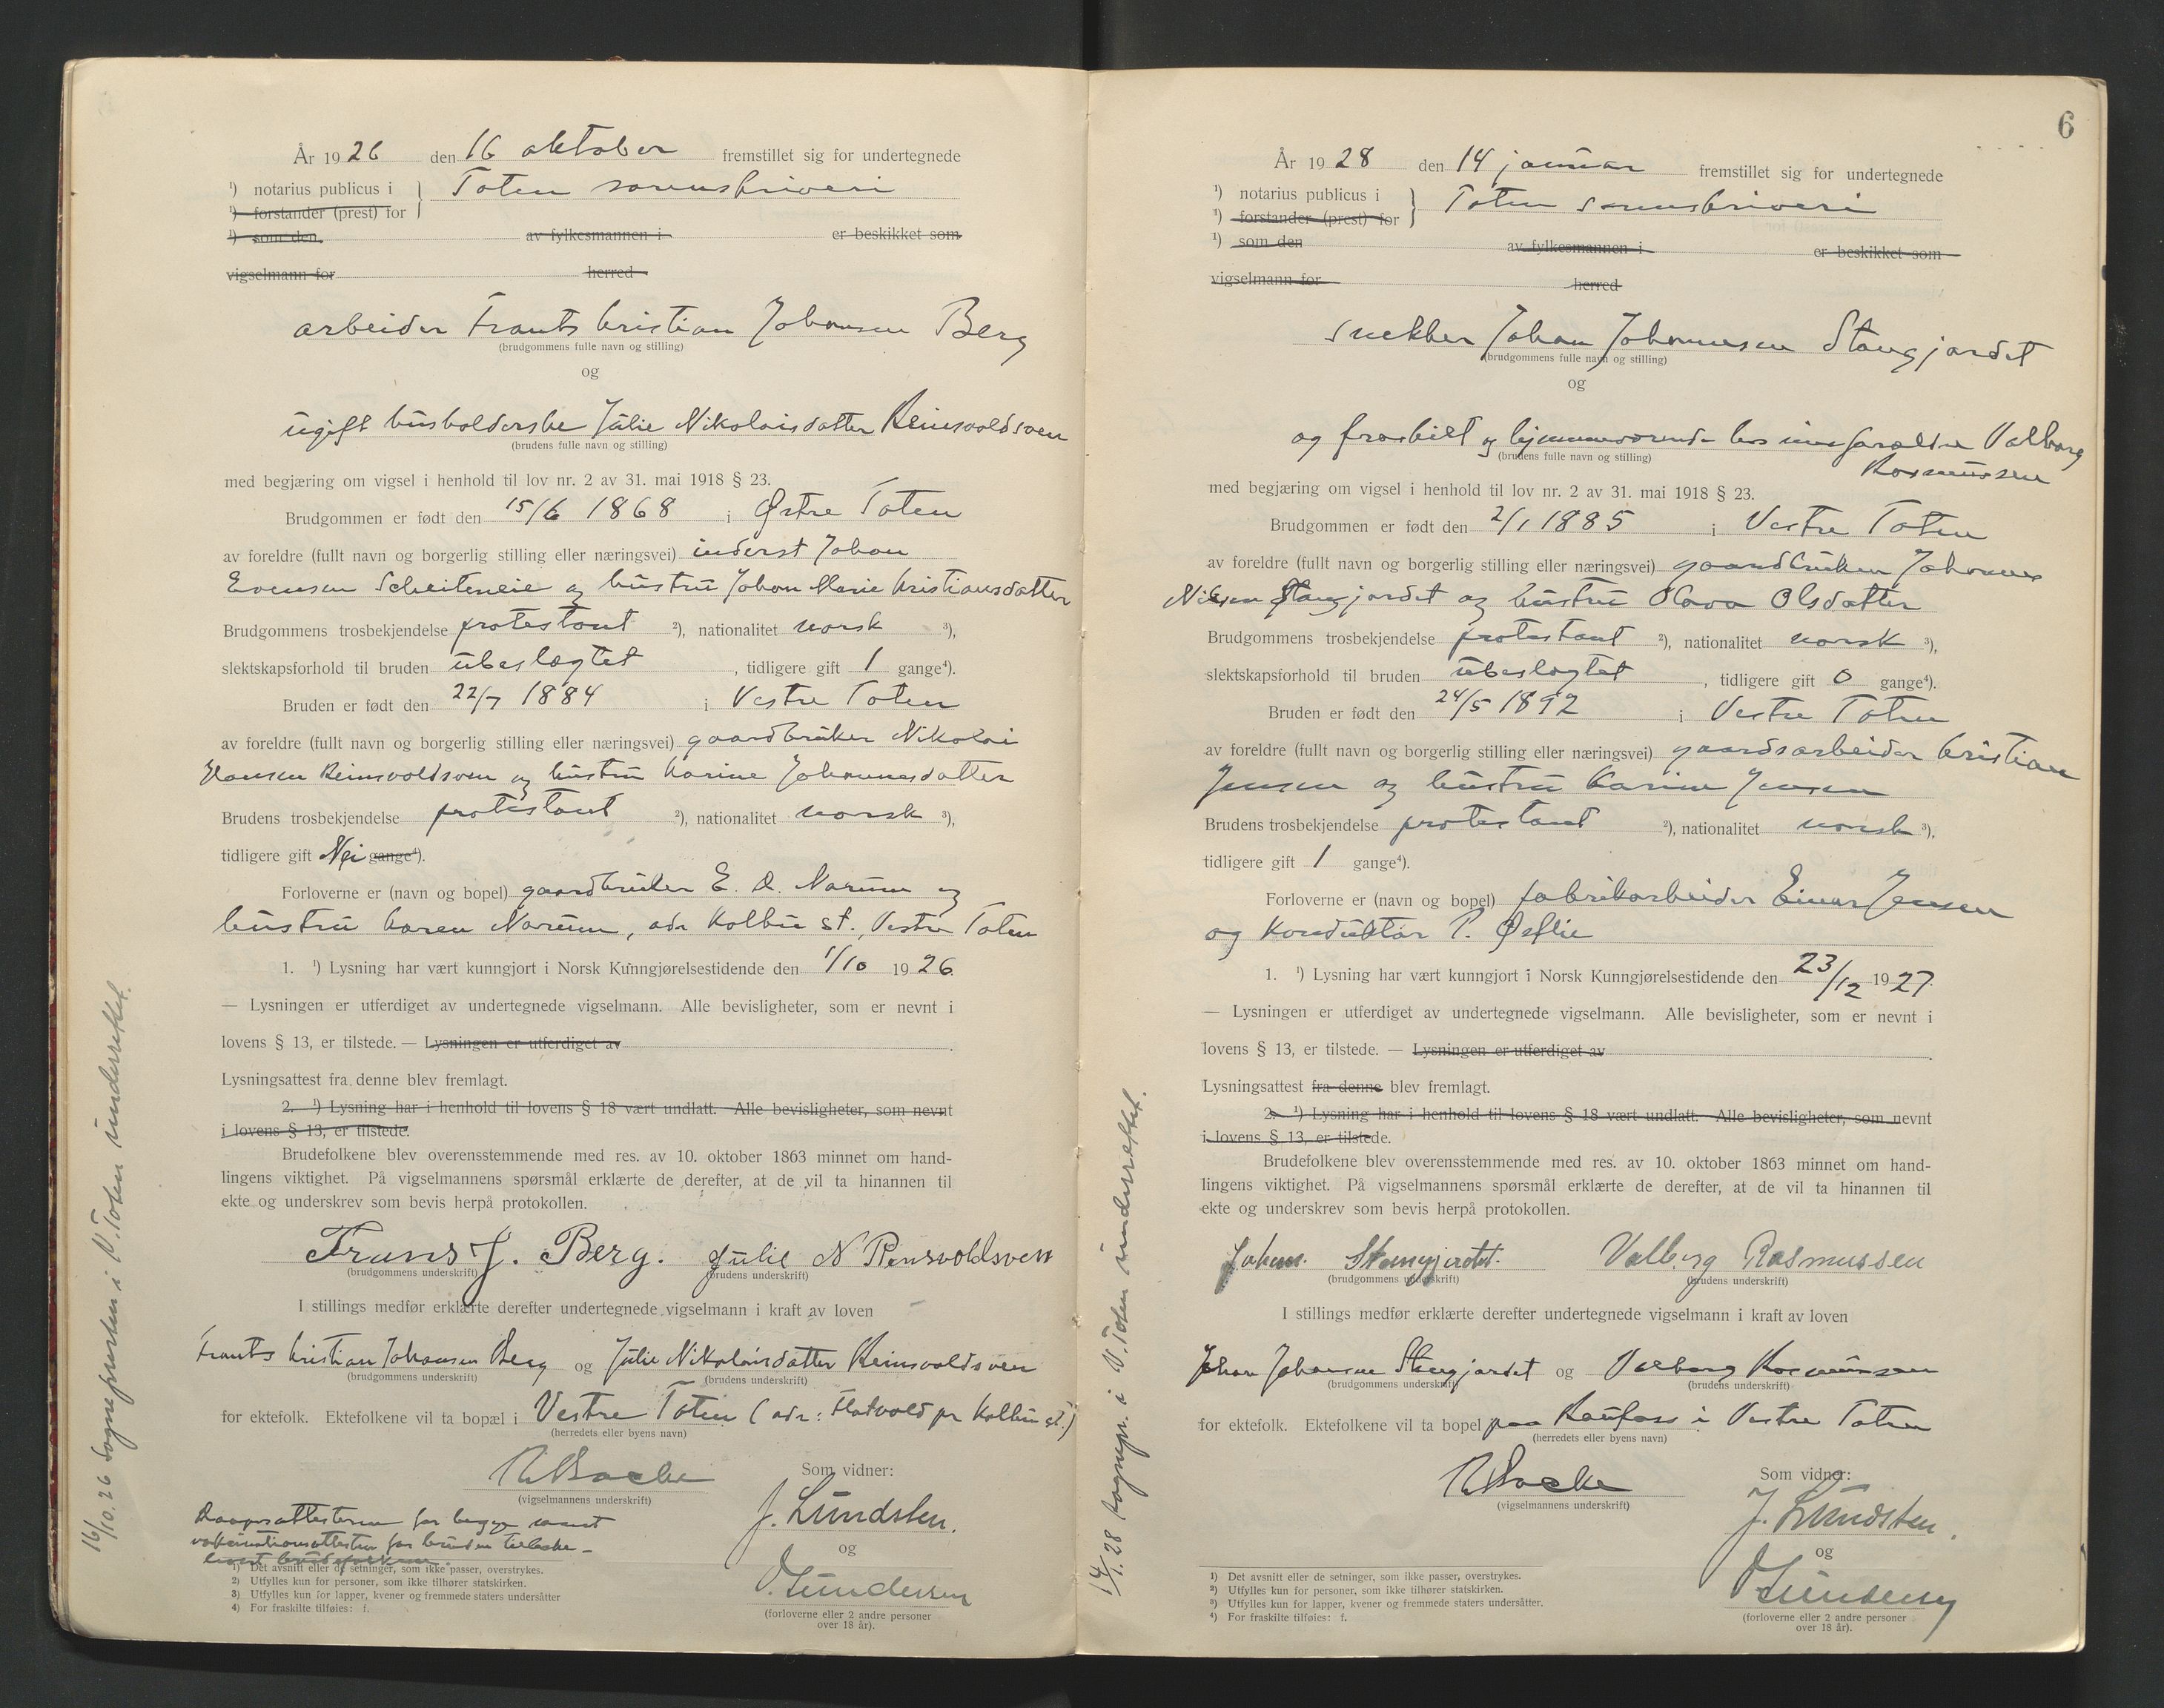 År 1926 den 16 oktober fremstillet sig for undertegnede
¹) notarius publicus i } Toten sorenskriveri
¹) forstander (prest) for
¹) som den av fylkesmannen i er beskikket som
vigselmann for herred
arbeider Frants Kristian Johansen Berg
(brudgommens fulle navn og stilling)
og
ugift husholderske Julie Nikolaisdatter Reinsvoldsveen
(brudens fulle navn og stilling)
med begjæring om vigsel i henhold til lov nr. 2 av 31. mai 1918 § 23.
Brudgommen er født den 15/6 1868 i Østre Toten
av foreldre (fullt navn og borgerlig stilling eller næringsvei) inderst Johan
Evensen og hustru Johan Marie Kristiansdatter
Brudgommens trosbekjendelse protestant ²), nationalitet norsk ³),
slektskapsforhold til bruden ubeslegtet, tidligere gift 1 gange⁴).
Bruden er født den 22/7 1884 i Vestre Toten
av foreldre (fullt navn og borgerlig stilling eller næringsvei) gaardbruker Nikolai
Hansen Reinsvoldsveen og hustru Karine Johannesdatter
Brudens trosbekjendelse protestant ²), nationalitet norsk ³),
tidligere gift Nei gange⁴).
Forloverne er (navn og bopel) gaardbruker E. Narum og
hustru Karen Narum, adr Kolbu st., Vestre Toten
1. ¹) Lysning har vært kunngjort i Norsk Kunngjørelsestidende den 1/10 1926
— Lysningen er utferdiget av undertegnede vigselmann. Alle bevisligheter, som er nevnt i
lovens § 13, er tilstede. — Lysningen er utferdiget av .
Lysningsattest fra denne blev fremlagt.
2. ¹) Lysning har i henhold til lovens § 18 vært undlatt. Alle bevisligheter, som nevnt
i lovens § 13, er tilstede.
Brudefolkene blev overensstemmende med res. av 10. oktober 1863 minnet om hand-
lingens viktighet. På vigselmannens spørsmål erklærte de derefter, at de vil ta hinannen til
ekte og underskrev som bevis herpå protokollen.
Frans J. Berg. Julie N Reinsvoldsveen
(brudgommens underskrift) (brudens underskrift)
I stillings medfør erklærte derefter undertegnede vigselmann i kraft av loven
Frants Kristian Johansen Berg og Julie Nikolaisdatter Reinsvoldsveen
(brudgommens underskrift) (brudens underskrift)
for ektefolk. Ektefolkene vil ta bopæl i Vestre Toten (adr: Flatvold pr Kolbu st.)
(herredets eller byens navn)
Som vidner:
(vigselmannens underskrift)
J. Lundsten.
og
O. Gundersen
(forloverne eller 2 andre personer
over 18 år).
Daapsattesterne for begge samt
vaksinationsattesten for bruden tilbake-
levert brudefolkene.
1) Det avsnitt eller de setninger, som ikke passer, overstrykes.
2) Utfylles kun for personer, som ikke tilhører statskirken.
3) Utfylles kun for lapper, kvener og fremmede staters undersåtter
4) For fraskilte tilføies: f.
16/10.26 Sognepresten i V. Toten underrettet.
6
År 1928 den 14 januar fremstillet sig for undertegnede
¹) notarius publicus i } Toten sorenskriveri
¹) forstander (prest) for
¹) som den av fylkesmannen i er beskikket som
vigselmann for herred
snekker Johan Johannesen Stangjordet
(brudgommens fulle navn og stilling)
og
og fraskilt og hjemmeværende hos sine forældre Valborg
Rasmussen
(brudens fulle navn og stilling)
med begjæring om vigsel i henhold til lov nr. 2 av 31. mai 1918 § 23.
Brudgommen er født den 2/1 1885 i Vestre Toten
av foreldre (fullt navn og borgerlig stilling eller næringsvei) gaardbruker Johannes
Nilsen Stangjordet og hustru Olava Olsdatter
Brudgommens trosbekjendelse protestant ²), nationalitet norsk ³),
slektskapsforhold til bruden ubeslegtet, tidligere gift 0 gange⁴).
Bruden er født den 24/5 1892 i Vestre Toten
av foreldre (fullt navn og borgerlig stilling eller næringsvei) gaardsarbeider Kristian
Jensen og hustru Karine Jensen
Brudens trosbekjendelse protestant ²), nationalitet norsk ³),
tidligere gift 1 gange⁴).
Forloverne er (navn og bopel) fabrikarbeider Einar Jensen
og Konduktør P. Østlie
1. ¹) Lysning har vært kunngjort i Norsk Kunngjørelsestidende den 23/12 1927.
— Lysningen er utferdiget av undertegnede vigselmann. Alle bevisligheter, som er nevnt i
lovens § 13, er tilstede. — Lysningen er utferdiget av .
Lysningsattest fra denne blev fremlagt.
2. ¹) Lysning har i henhold til lovens § 18 vært undlatt. Alle bevisligheter, som nevnt
i lovens § 13, er tilstede.
Brudefolkene blev overensstemmende med res. av 10. oktober 1863 minnet om hand-
lingens viktighet. På vigselmannens spørsmål erklærte de derefter, at de vil ta hinannen til
ekte og underskrev som bevis herpå protokollen.
Johan. Stangjordet. Valborg Rasmussen
(brudgommens underskrift) (brudens underskrift)
I stillings medfør erklærte derefter undertegnede vigselmann i kraft av loven
Johan Johansen Stangjordet og Valborg Rasmussen
(brudgommens underskrift) (brudens underskrift)
for ektefolk. Ektefolkene vil ta bopel paa Raufoss i Vestre Toten
(herredets eller byens navn)
Som vidner:
(vigselmannens underskrift)
J. Lundsten.
og
(forloverne eller 2 andre personer
over 18 år).
1) Det avsnitt eller de setninger, som ikke passer, overstrykes.
2) Utfylles kun for personer, som ikke tilhører statskirken.
3) Utfylles kun for lapper, kvener og fremmede staters undersåtter.
4) For fraskilte tilføies: f.
14/1.28 sognepr. i V. Toten underrettet.